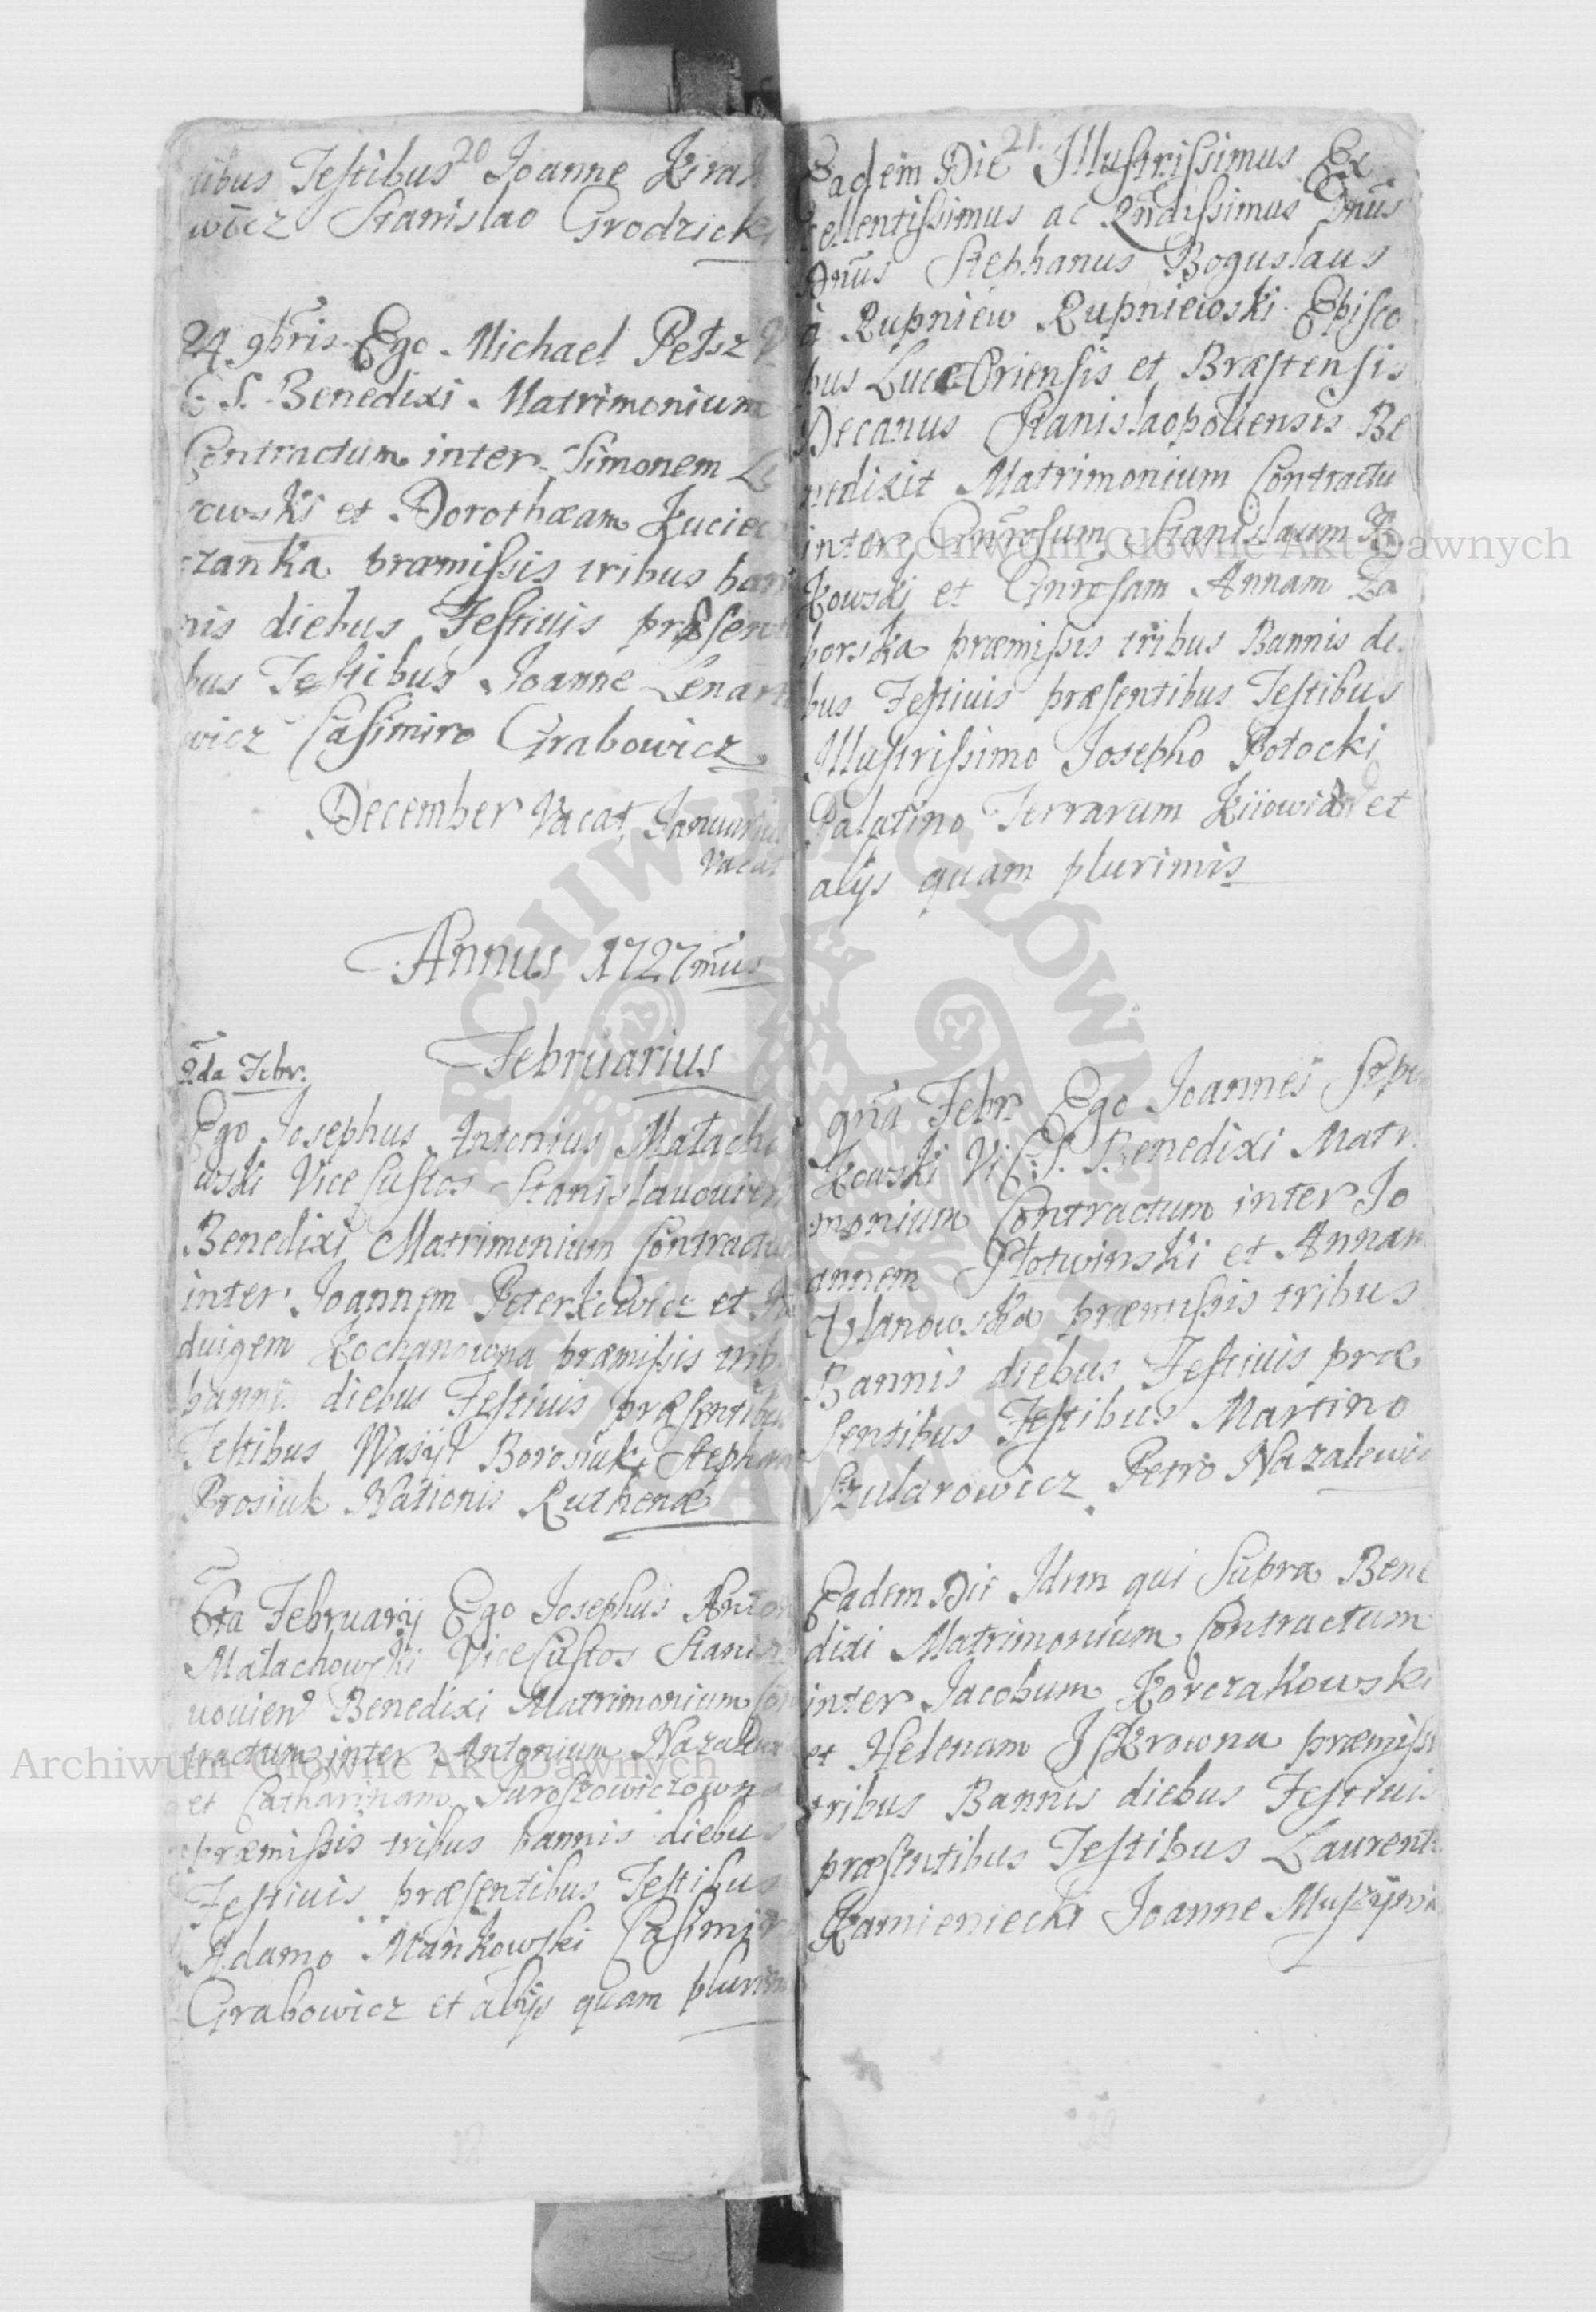 20
tibus Testibus Joanne
wicz Stanislao Grodzick
24 9bris Ego Michael Petsz
C S. Benedixi Matrimonium
Contractum inter Simonem
rowski et Dorothæam Kucie
czanka præmissis tribus ban
nis diebus Festiuis præsen
bus Testibus Joanne Lenart
wicz Casimiro Grabowicz
December Vacat, Januarius
vacat
Annus 1727mus
Februarius
2da Febr.
Ego Josephus Antonius Małacho
wski Vice Custos Stanislauouien
Benedixi Matrimonium Contractu
inter Joannem Peterkowicz et
duigem Kochanowna præmissis trib
bannis diebus Festiuis præsentibus
Testibus Wasÿl Borosiuk, Stephan
Prosiuk Nationis Ruthenæ
6ta Februarÿ Ego Josephus Anton
Małachowski Vice Custos Stanis
uouien Benedixi Matrimonium Con
tractum inter Antonium Nazalewi
et Catharinam Jaroszowiczowna
præmissis tribus bannis diebus
Festiuis præsentibus Testibus
Adamo Mankowski Casimir
Grabowicz et alÿs quam plurim
21.
Eadem Die Illustrissimus Ex
cellentissimus ac Rndissimus Dnus
Dnus Stephanus Boguslaus
à Rupniew Rupniewski Episco
bus Luceoriensis et Bræstensis
Decanus Stanislaopoliensis Be
nedixit Matrimonium Contractu
inter Gnrosum Stanislaum
kowski et Gnrosam Annam Za
borska præmissis tribus Bannis die
bus Festiuis præsentibus Testibus
Illustrissimo Josepho Potocki
Palatino Terrarum Kiiowiæ et
alÿs quam plurimis
9na Febr Ego Joannes
kowski V. C: S. Benedixi Matri
monium Contractum inter Jo
annem Płotwinski et Annam
Vlanowska præmissis tribus
Bannis diebus Festiuis præ
sentibus Testibus Martino
Szularowicz Petro Nazalewic
Eadem Die Idem qui Supra Bene
dixi Matrimonium Contractum
inter Jacobum Korczakowski
et Helenam Iskrowna præmissi
tribus Bannis diebus Festiuis
præsentibus Testibus Laurenti
Kamieniecki Joanne
Archiwum Główne Akt Dawnych
Archiwum Główne Akt Dawnych
ARCHIWUM GŁÓWNE AKT DAWNYCH